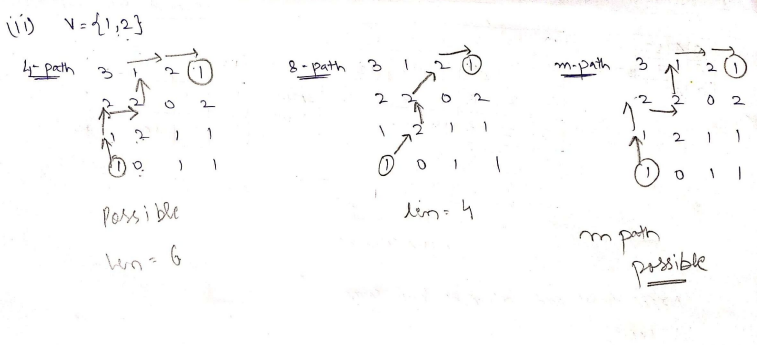 (ii) V = {1,2}
4-path 3 1 2 1
2 2 0 2
1 2 1 1
1 0 1 1
Possible
len = 6
8-path 3 1 2 1
2 2 0 2
1 2 1 1
1 0 1 1
len = 4
m-path 3 1 2 1
2 2 0 2
1 2 1 1
1 0 1 1
m path
possible